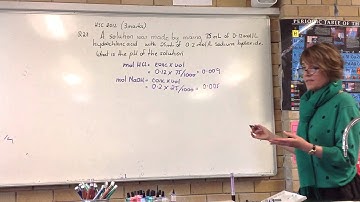 HSC 2012 (3 marks)
Q28 A solution was made by mixing 75mL of 0.12mol/L
hydrochloric acid with 25mL of 0.2 mol/L sodium hydroxide.
What is the pH of the solution
mol HCl = conc x vol
= 0.12 x 75/1000 = 0.009
mol NaOH = conc x vol
= 0.2 x 25/1000 = 0.005
PERIODIC TABLE OF